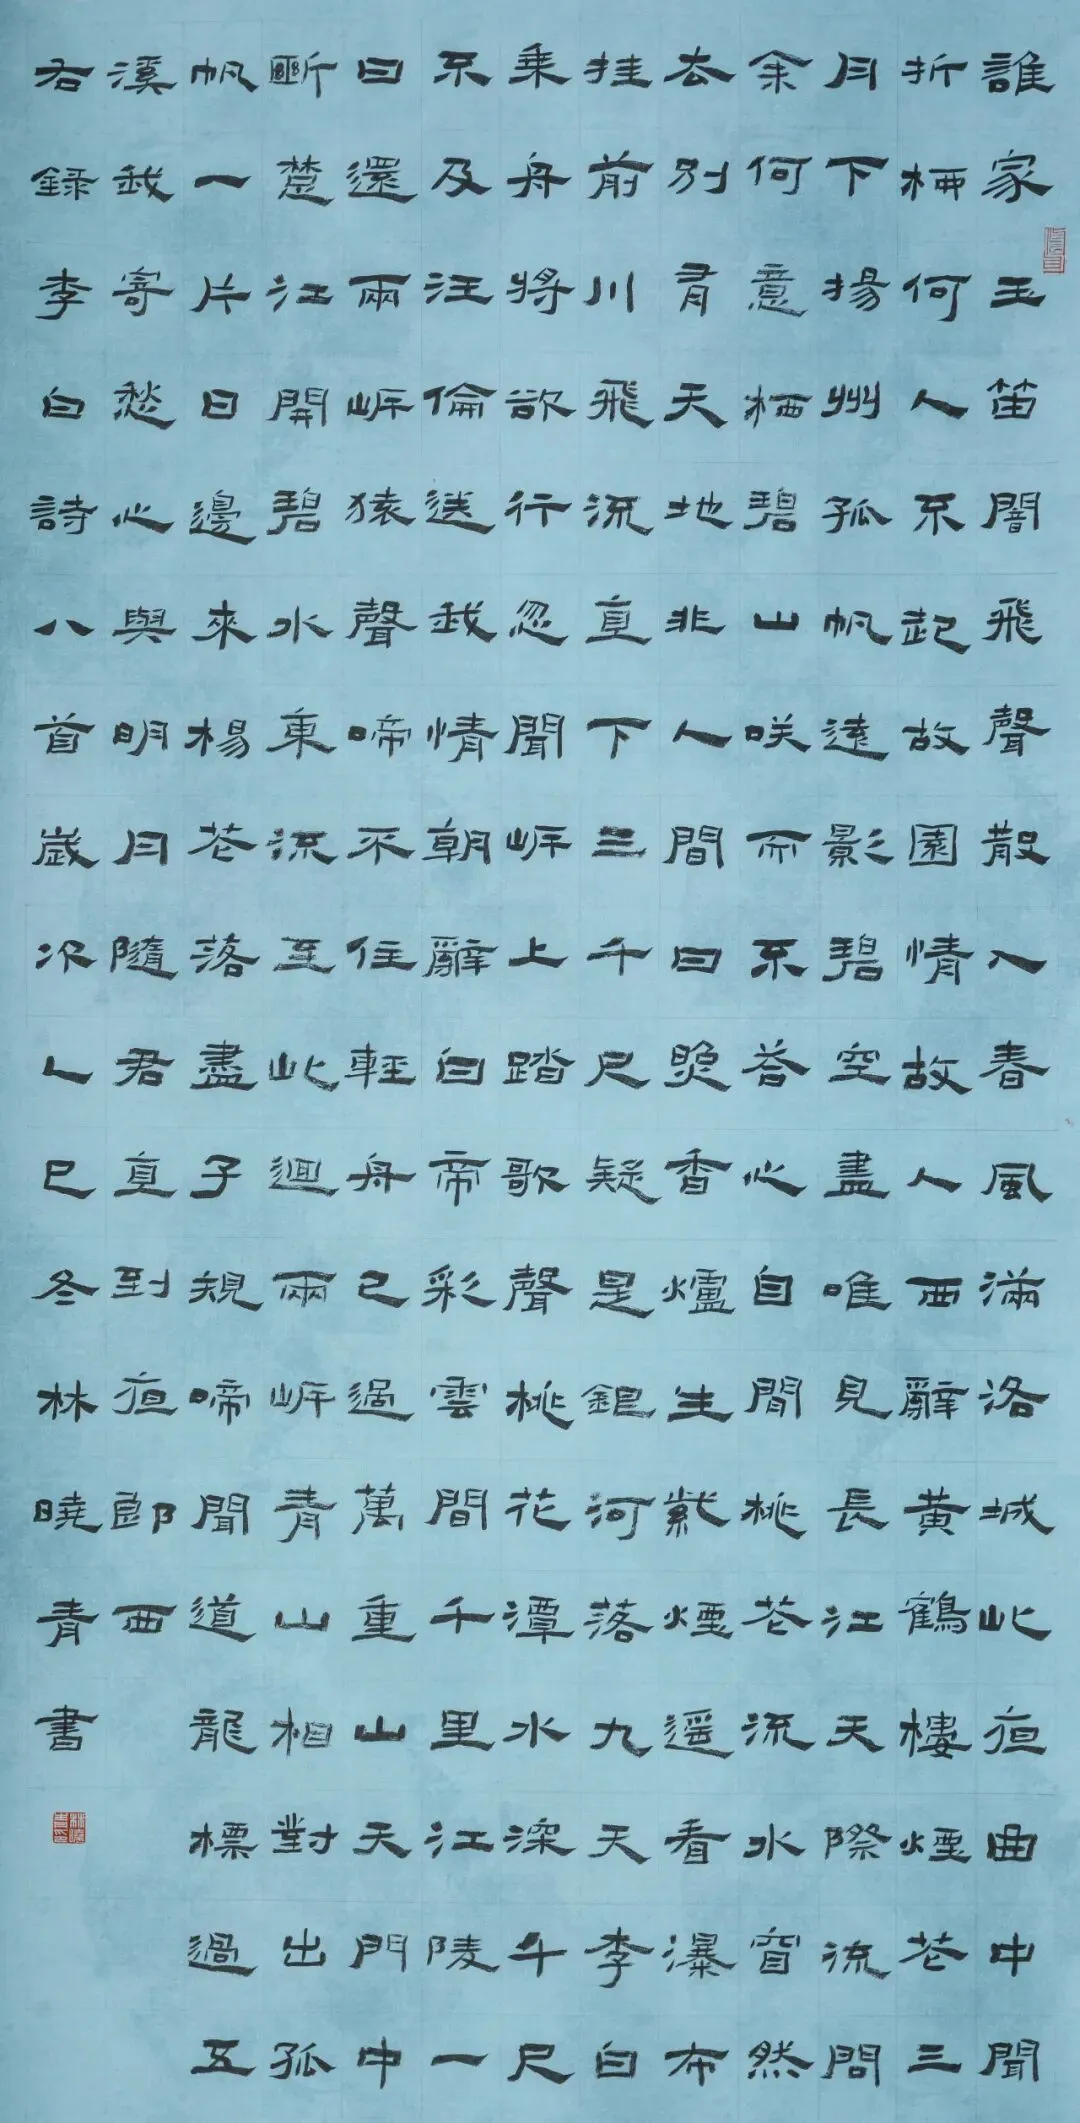 誰家玉笛闇飛聲散入春風滿洛城此夜曲中聞
折柳何人不起故園情故人西辭黃鶴樓煙花三
月下揚州孤帆遠影碧空盡唯見長江天際流問
余何意栖碧山咲而不答心自閒桃花流水窅然
去別有天地非人間日照香爐生紫煙遥看瀑布
挂前川飛流直下三千尺疑是銀河落九天李白
乘舟將欲行忽聞岸上踏歌聲桃花潭水深千尺
不及汪倫送我情朝辭白帝彩雲間千里江陵一
日還兩岸猿聲啼不住輕舟已過萬重山天門中
斷楚江開碧水東流至此迴兩岸青山相對出孤
帆一片日邊來楊花落盡子規啼聞道龍標過五
溪我寄愁心與明月隨君直到夜郎西
右録李白詩八首歲次乙巳冬林曉青書